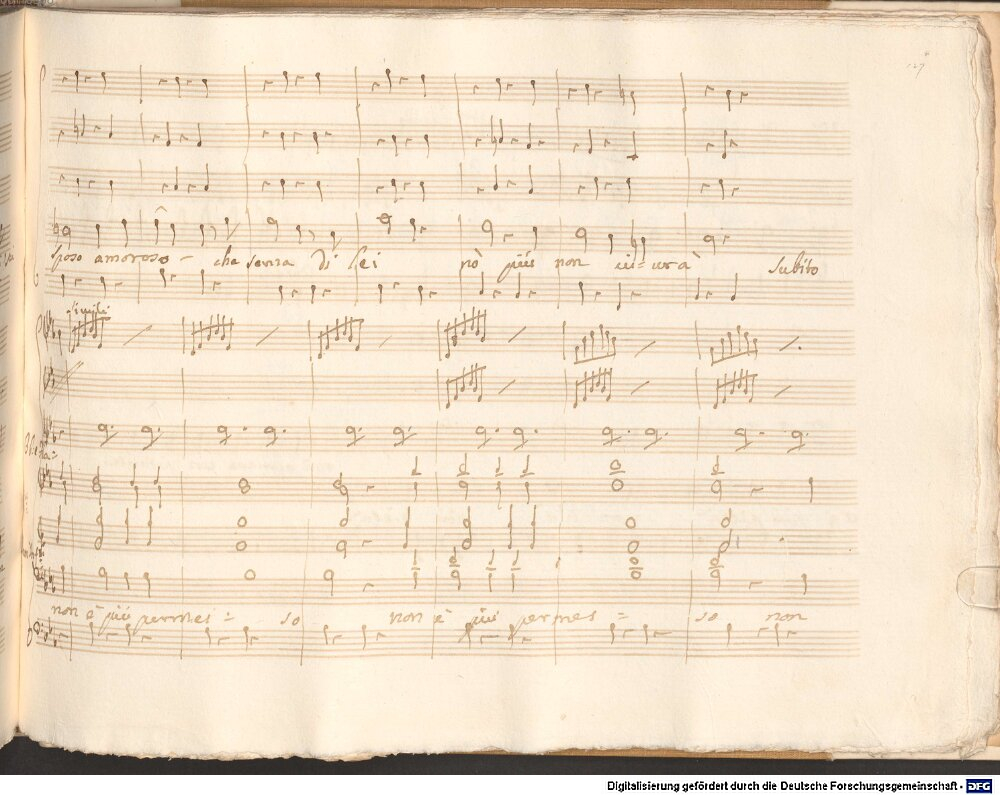 127
sposo amoroso - che senza di lei nò più non ui = urà subito
simili
non è più permes = so non è più permes = so non
Digitalisierung gefördert durch die Deutsche Forschungsgemeinschaft - DFG